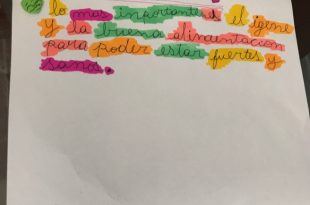 lo mas importante el igene
y la buena alimentacion
para poder estar fuertes y
sanos.